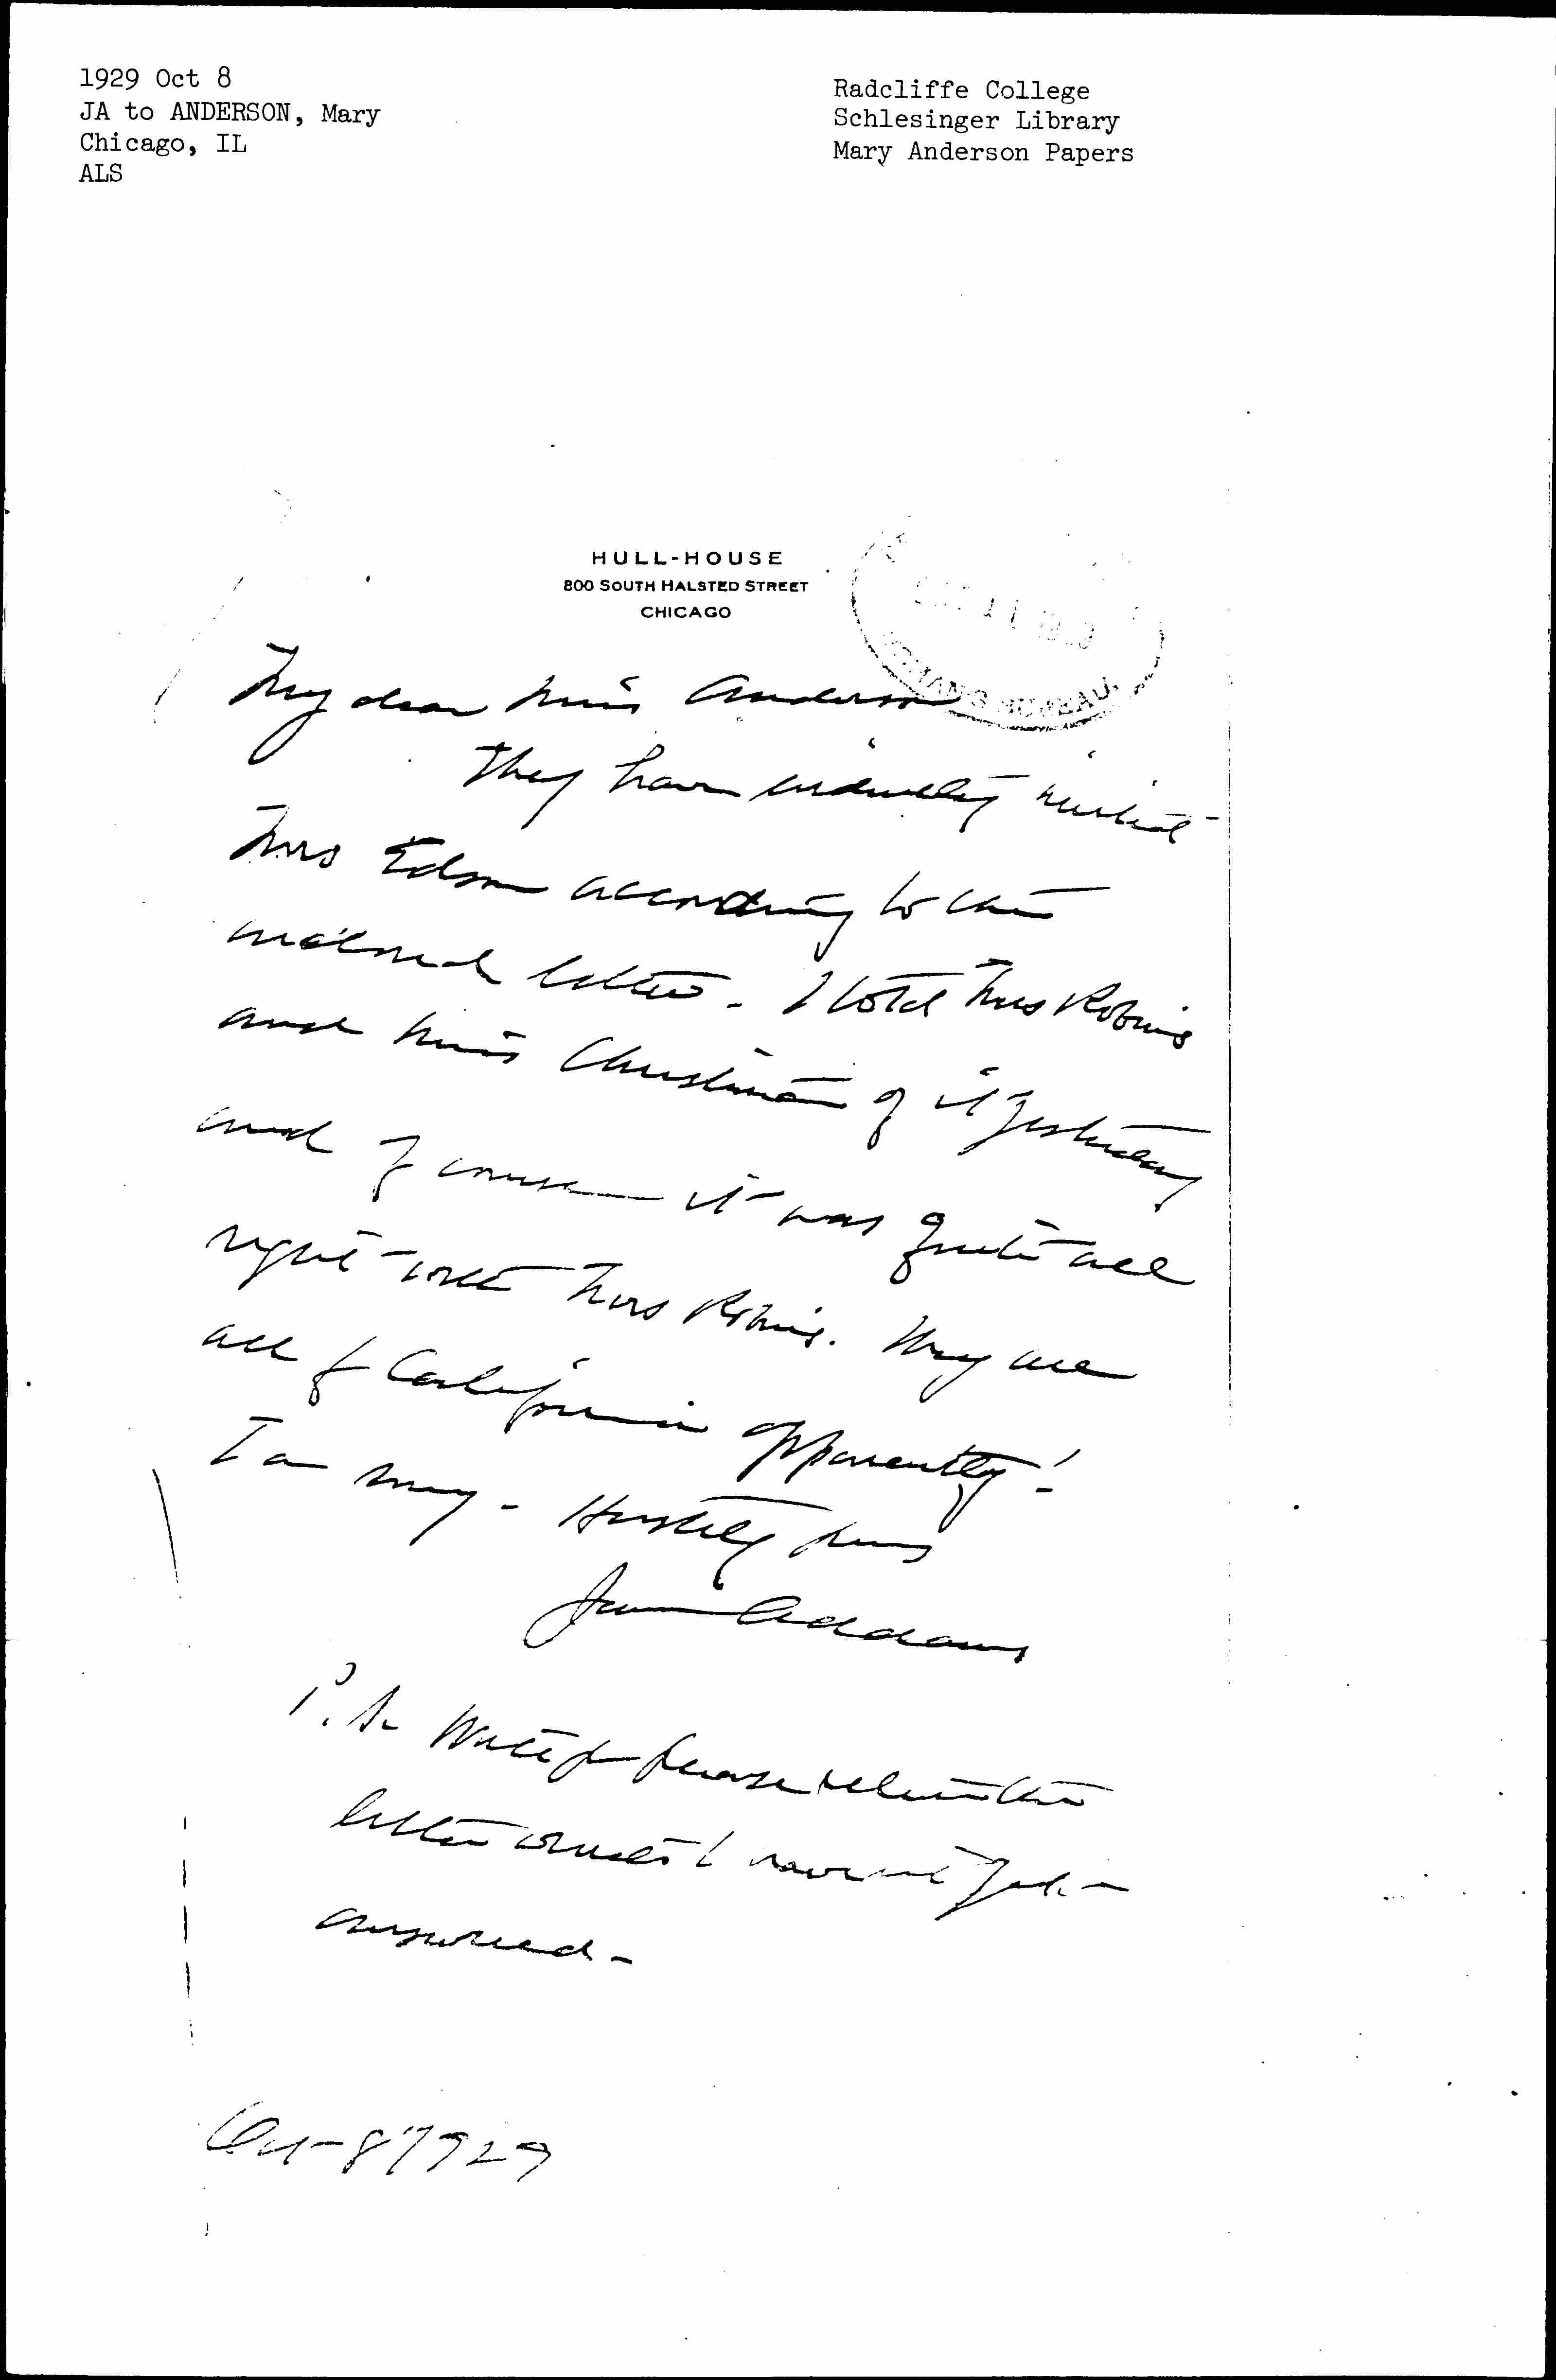 1929 Oct 8
JA to ANDERSON, Mary
Chicago, IL
ALS
Radcliffe College
Schlesinger Library
Mary Anderson Papers
HULL-HOUSE
800 SOUTH HALSTED STREET
CHICAGO
WOMAN'S BUREAU
My dear Miss Anderson
They have evidently invited
Mrs Edson according to this
enclosed letter - I told Mrs Robins
and Miss Christman of it yesterday
and of course it was quite all
right with Mrs Robins. They are
all of California apparently!
Hastily yours
Jane Addams
P.S. please return the
letter I have not yet
answered -
Oct 8" 1929